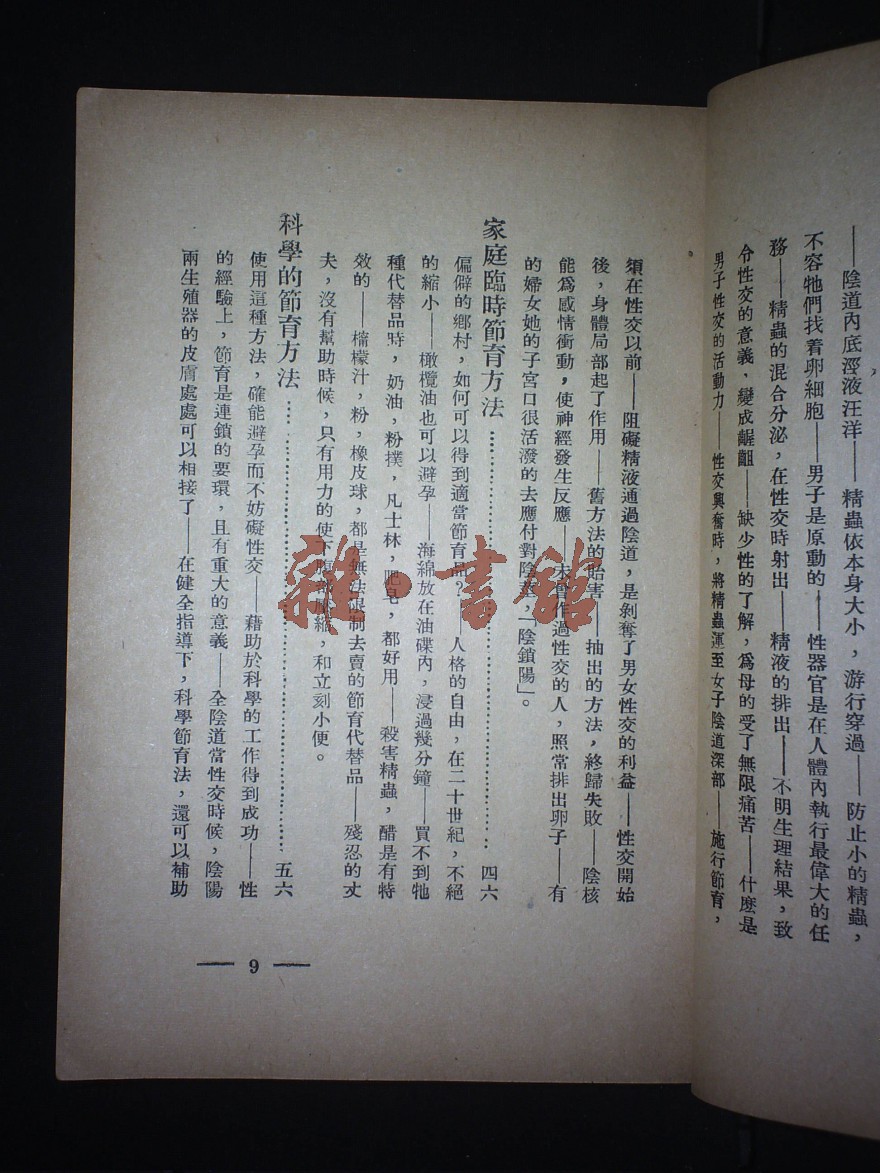 ——陰道內底淫液汪洋——精蟲依本身大小，游行穿過——防止小的精蟲，
不容牠們找着卵細胞——男子是原動的——性器官是在人體內執行最偉大的任
務——精蟲的混合分泌，在性交時射出——精液的排出——不明生理結果，致
令性交的意義，變成齷齪——缺少性的了解，爲母的受了無限痛苦——什麽是
男子性交的活動力——性交興奮時，將精蟲運至女子陰道深部——施行節育，
須在性交以前——阻礙精液通過陰道，是剝奪了男女性交的利益——性交開始
後，身體局部起了作用——舊方法的貽害——抽出的方法，終歸失敗——陰核
能爲感情衝動，使神經發生反應——未曾作過性交的人，照常排出卵子——有
的婦女她的子宮口很活潑的去應付對陰莖，「陰鎖陽」。
家庭臨時節育方法……………………………………四六
偏僻的鄉村，如何可以得到適當節育品？——人格的自由，在二十世紀，不絕
的縮小——橄欖油也可以避孕——海綿放在油碟內，浸過幾分鐘——買不到牠
種代替品時，奶油，粉撲，凡士林，肥皂，都好用——殺害精蟲，醋是有特
效的——檸檬汁，粉，橡皮球，都是無法限制去賣的節育代替品——殘忍的丈
夫，沒有幫助時候，只有用力的使下腹部收縮，和立刻小便。
科學的節育方法……………………………………五六
使用這種方法，確能避孕而不妨礙性交——藉助於科學的工作得到成功——性
的經驗上，節育是連鎖的要環，且有重大的意義——全陰道當性交時候，陰陽
兩生殖器的皮膚處處可以相接了——在健全指導下，科學節育法，還可以補助
— 9 —
雜·書館